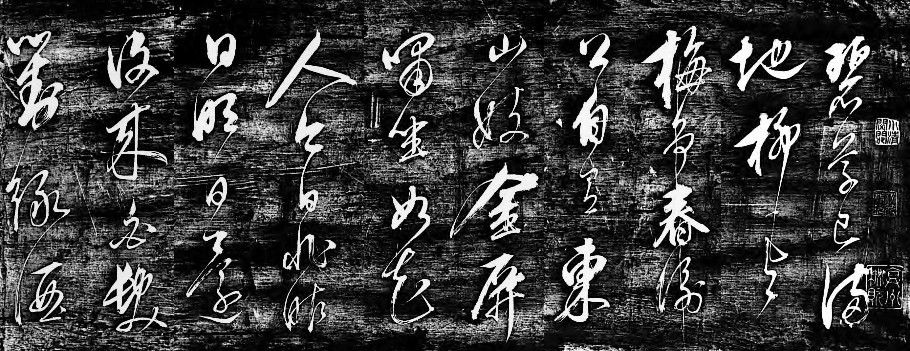 碧草已滿
地柳與
梅爭春謝
公自有東
山妓金屏
嘯坐如花
人今日非昨
日明日還
復來白髮
對綠酒